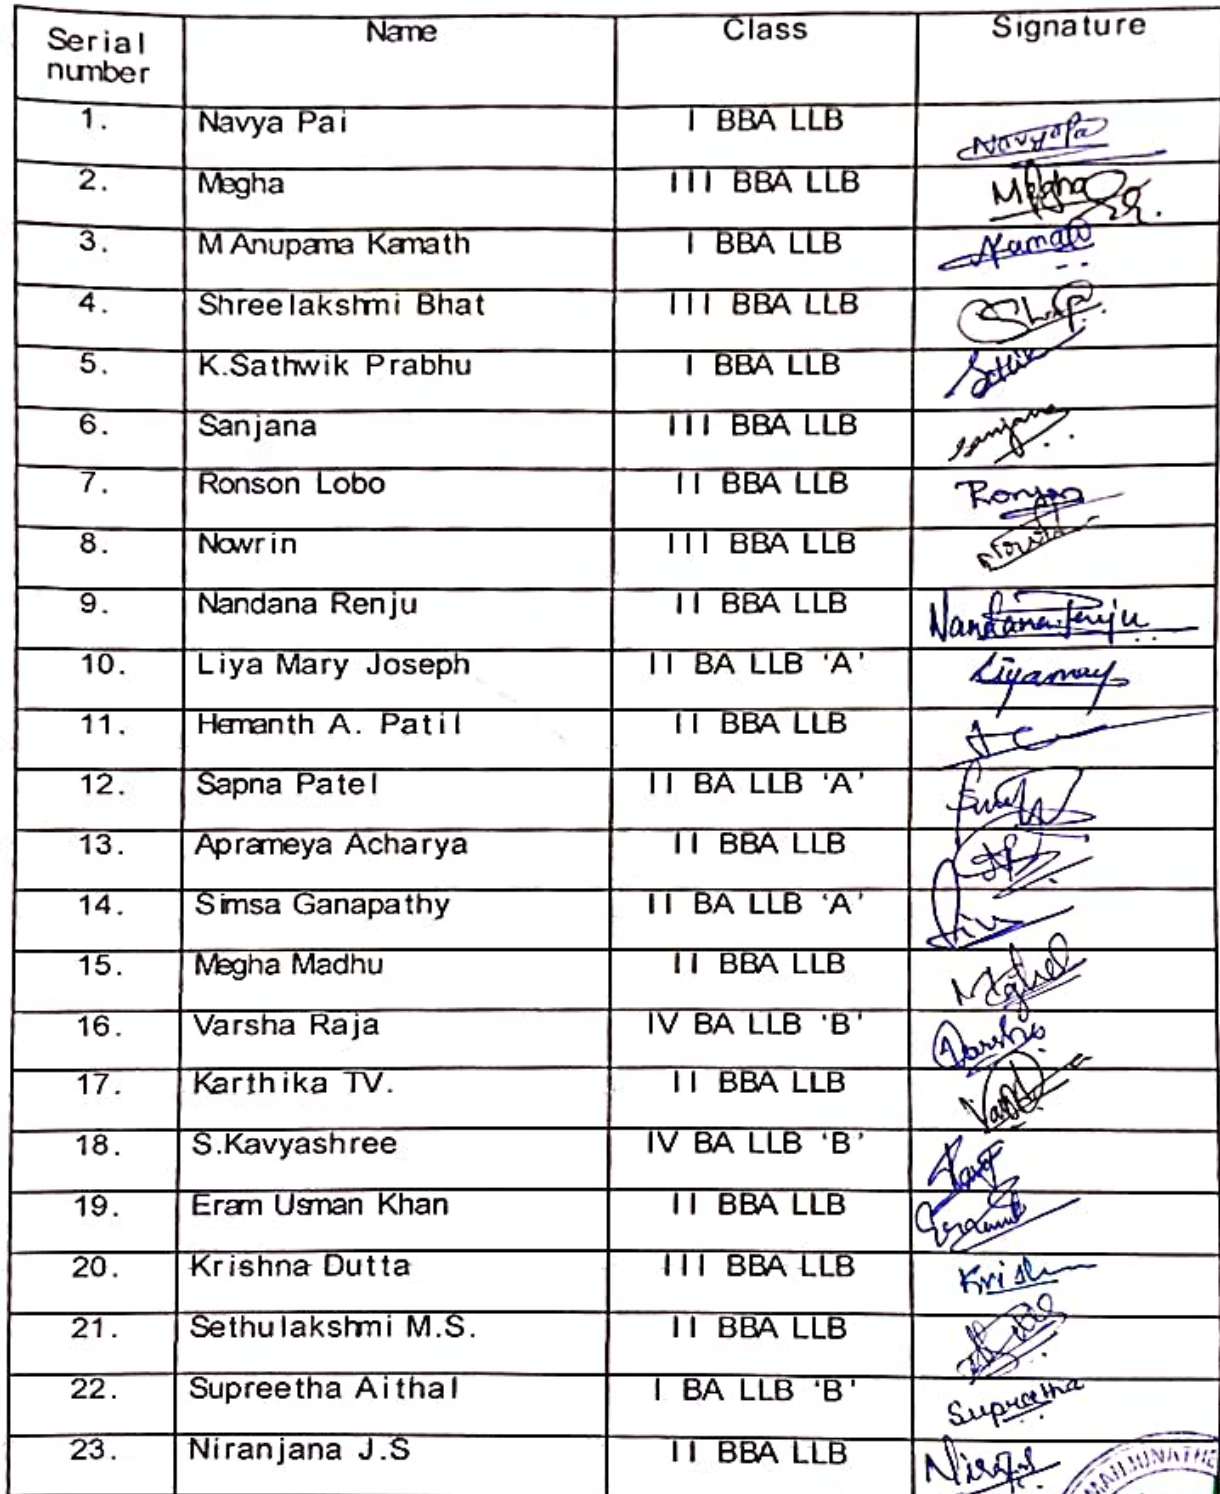 Serial number Name Class Signature
1. Navya Pai I BBA LLB Navyapa
2. Megha III BBA LLB Megha
3. M Anupama Kamath I BBA LLB Kamath
4. Shreelakshmi Bhat III BBA LLB
5. K.Sathwik Prabhu I BBA LLB
6. Sanjana III BBA LLB Sanjana
7. Ronson Lobo II BBA LLB Ronson
8. Nowrin III BBA LLB
9. Nandana Renju II BBA LLB Nandana Renju
10. Liya Mary Joseph II BA LLB 'A' Liyamary
11. Hemanth A. Patil II BBA LLB
12. Sapna Patel II BA LLB 'A'
13. Aprameya Acharya II BBA LLB
14. Simsa Ganapathy II BA LLB 'A'
15. Megha Madhu II BBA LLB
16. Varsha Raja IV BA LLB 'B' Varsha
17. Karthika TV. II BBA LLB
18. S.Kavyashree IV BA LLB 'B'
19. Eram Usman Khan II BBA LLB
20. Krishna Dutta III BBA LLB
21. Sethulakshmi M.S. II BBA LLB
22. Supreetha Aithal I BA LLB 'B' Supreetha
23. Niranjana J.S II BBA LLB